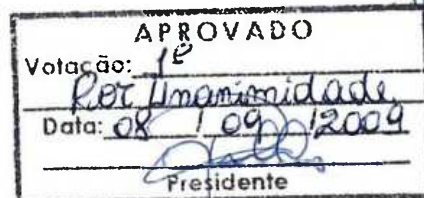 APROVADO
Votação: 1ª
Por Unanimidade
Data: 08 / 09 / 2009
Presidente